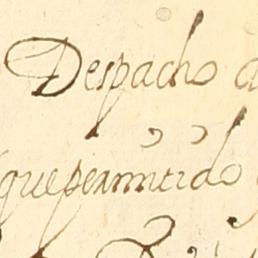 Despacho
que permitido